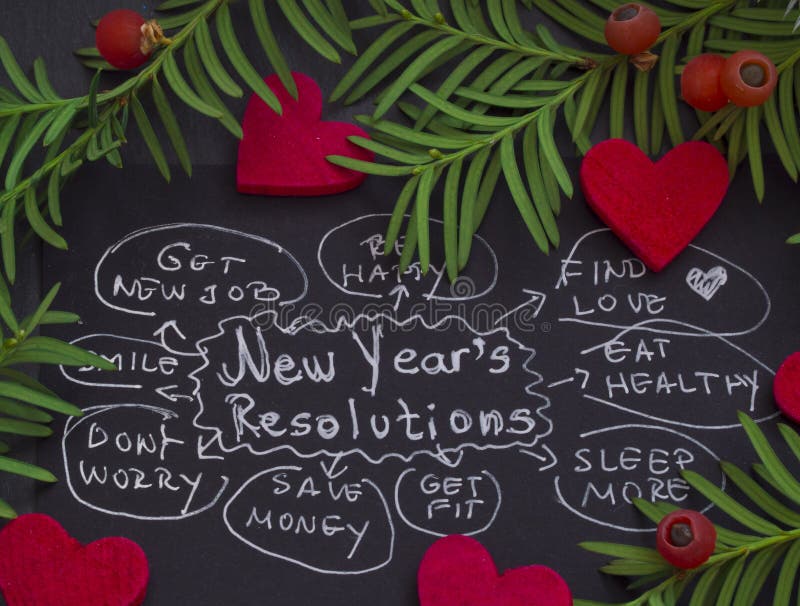 GET
NEW JOB
BE
HAPPY
FIND
LOVE
SMILE
New Year's
Resolutions
EAT
HEALTHY
DONT
WORRY
SAVE
MONEY
GET
FIT
SLEEP
MORE